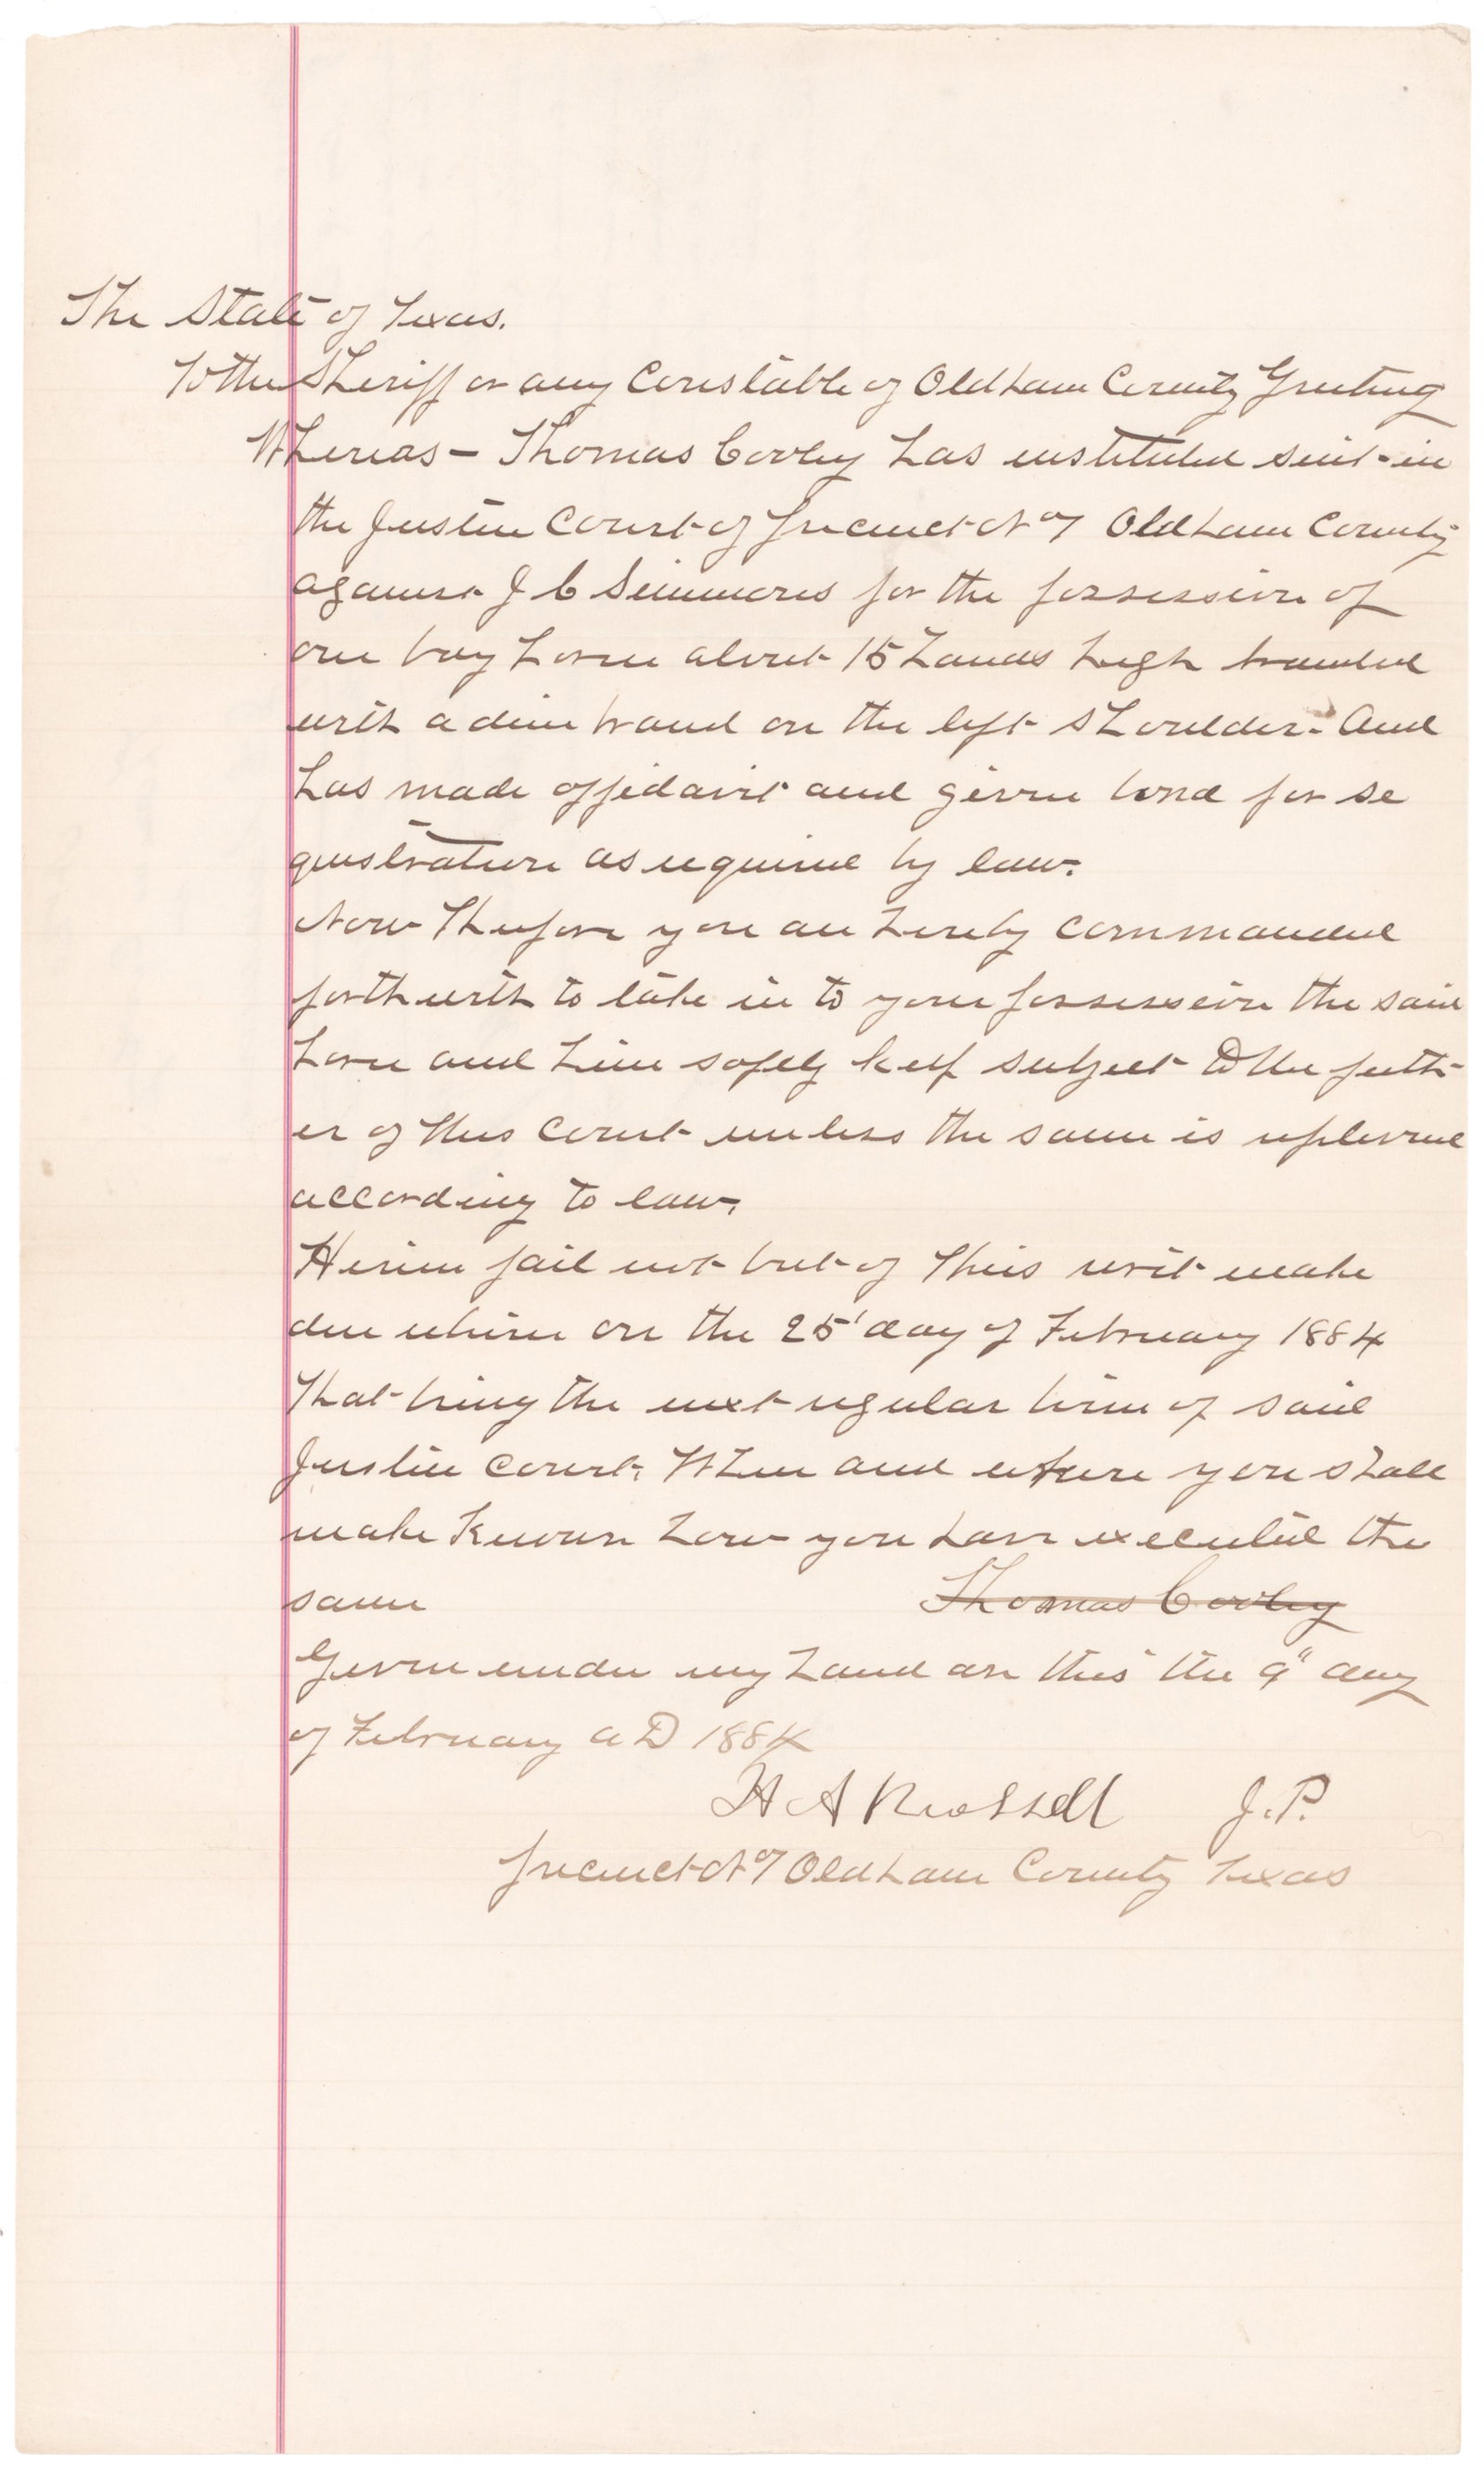 The State of Texas.
To the Sheriff or any Constable of Oldham County Greeting
Whereas – Thomas Cooley has instituted suit in
the Justice Court of Precinct No 1 Oldham County
against J C Simmons for the possession of
one bay horse about 15 hands high branded
with a brand on the left shoulder. And
has made affidavit and given bond for se
questration as required by law.
Now Therefore you are hereby commanded
forthwith to take in to your possession the said
horse and him safely keep subject to the furth-
er of this Court unless the same is replevied
according to law.
Herein fail not but of This writ make
due return on the 25' day of February 1884
That being the next regular term of said
Justice Court. When and where you shall
make Known how you have executed the
same Thomas Cooley
Given under my hand on this the 9" day
of February A D 1884
H A Russell J.P.
Precinct No 1 Oldham County Texas